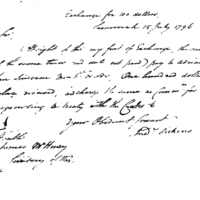 Exchange for 100 dollars.
Savannah 15 July 1796
Sir,
At sight of this my first of Exchange, the second
of the same tenor and date not paid) pay to
or order. One hundred dollars
value received, & charge the same as Commr. for
negociating a treaty with the Creeks &
Your Obedient Servant
Andw. Pickens
James McHenry
Secretary of War